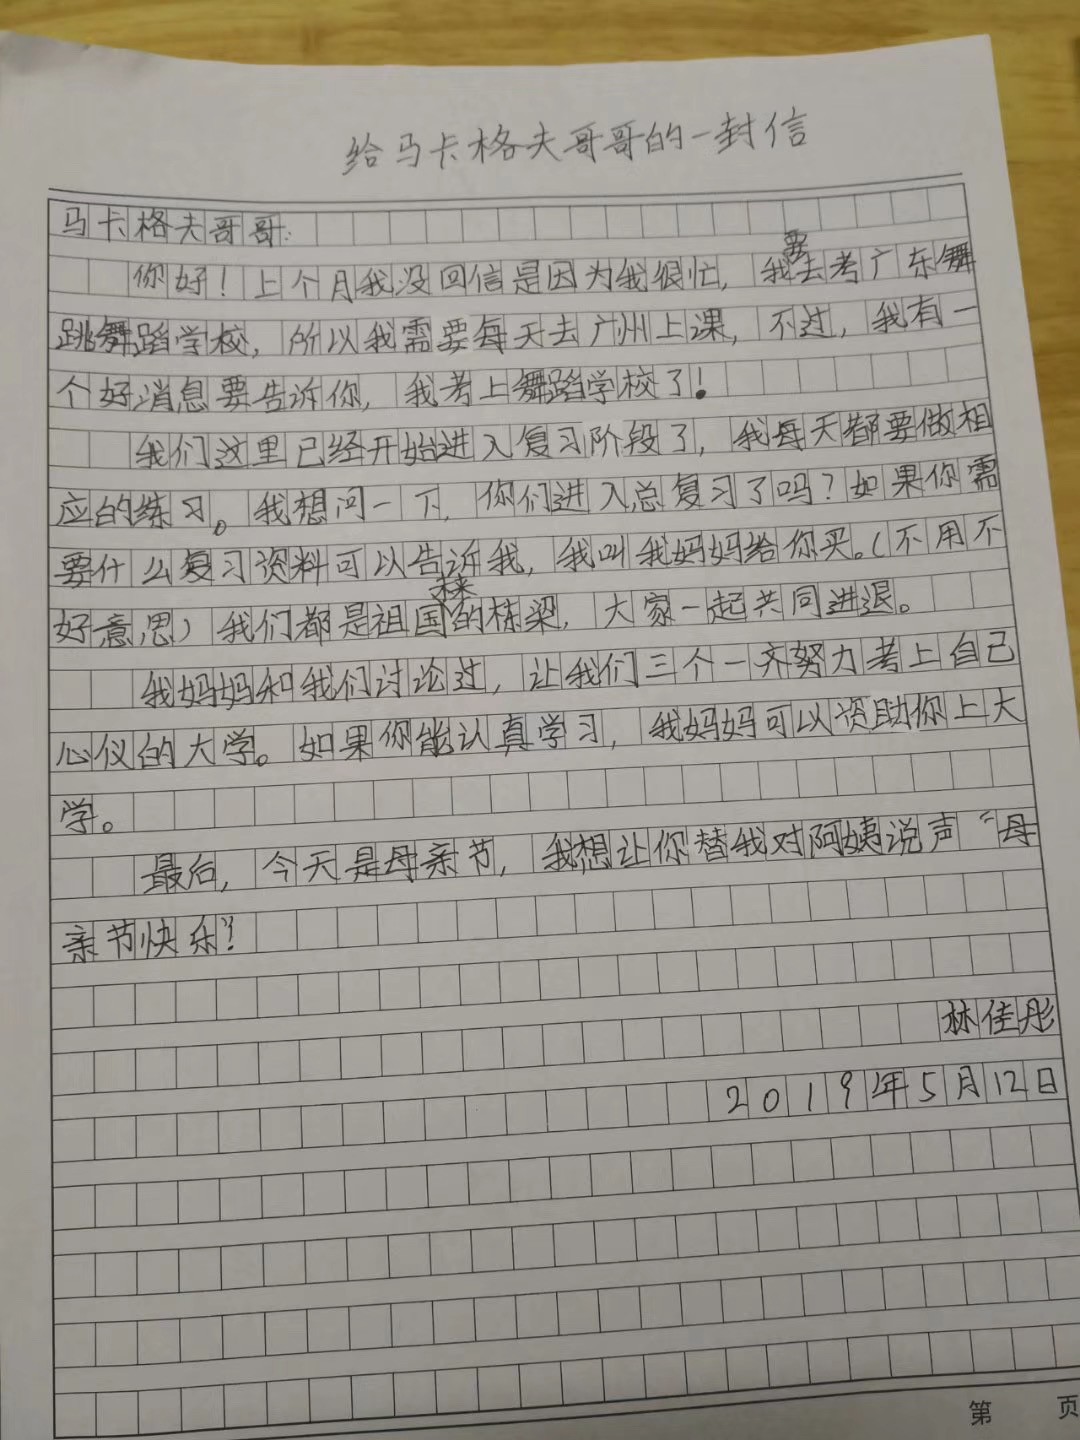 给马卡格夫哥哥的一封信
马卡格夫哥哥:
你好！上个月我没回信是因为我很忙，我要去考广东舞
跳舞蹈学校，所以我需要每天去广州上课，不过，我有一
个好消息要告诉你，我考上舞蹈学校了！
我们这里已经开始进入复习阶段了，我每天都要做相
应的练习。我想问一下，你们进入总复习了吗？如果你需
要什么复习资料可以告诉我，我叫我妈妈给你买。（不用不
好意思）我们都是祖国未来的栋梁，大家一起共同进退。
我妈妈和我们讨论过，让我们三个一齐努力考上自己
心仪的大学。如果你能认真学习，我妈妈可以资助你上大
学。
最后，今天是母亲节，我想让你替我对阿姨说声“母
亲节快乐”！
林佳彤
2019年5月12日
第 页